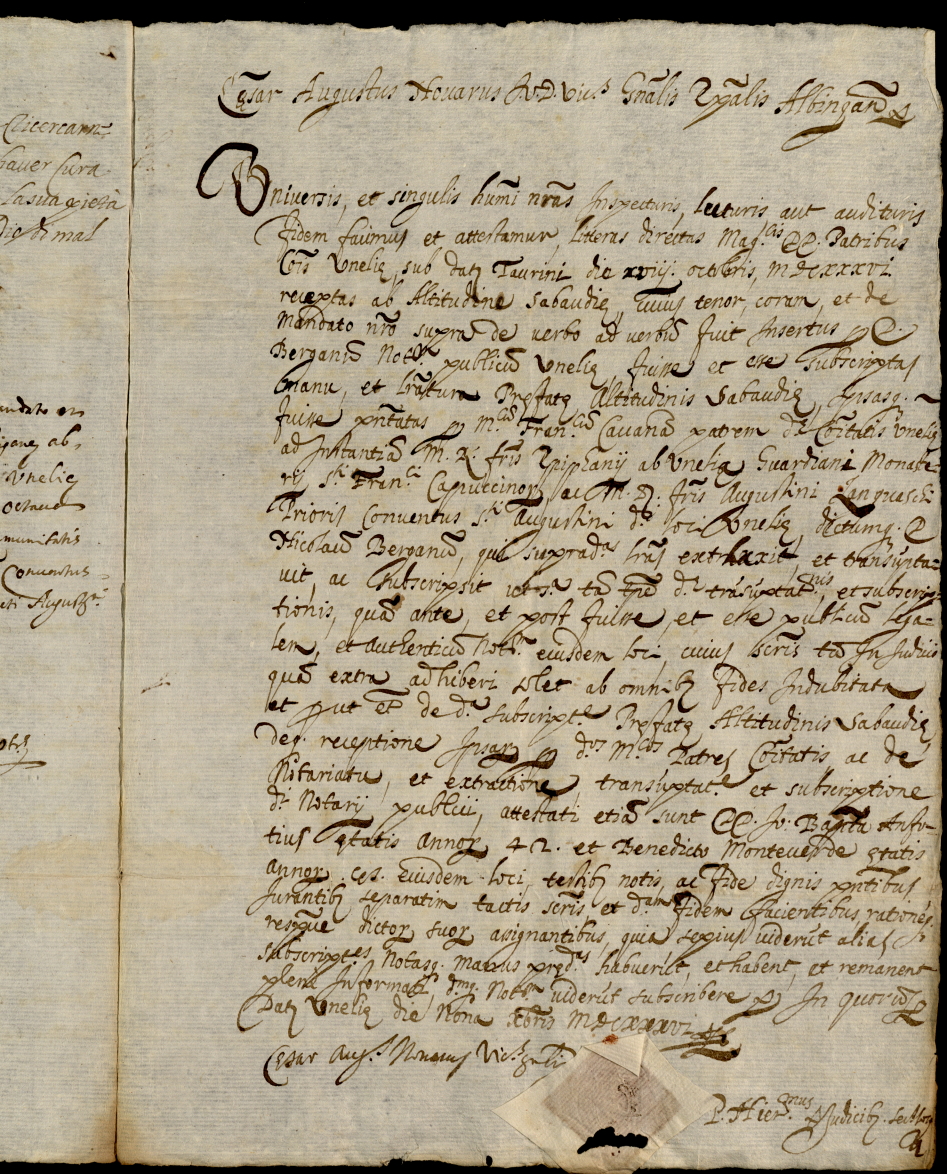 Clicercann
haver sura
la sua pietà
Dio di mal
andato
ab
Unelię
octava
munitatis
Conventus
Augusti
Cęsar Augustus Novarus V.D. Vic.s Gñalis Epalis Albingañ
Universis, et singulis humi nrãs Inspecturis, lecturis aut audituris
fidem facimus et attestamur, litteras directas Mag.cis DD. Patribus
Cois Unelię, sub datũ Taurini die xviij. octobris, MDCXXXVI
receptas ab Altitudine Sabaudię, cuius tenor, coram, et de
mandato nrõ supra de verbo ad verbũ fuit Insertus p D.
Berganũ Not.m publicũ Unelię, fuisse et esse subscriptas
manu, et Prefatę Altitudinis Sabaudię, Ipsasq.
fuisse pñtatas p M.cũ Fran.cũ Cavanã patrem d.ę Coitatis Unelię
ad Instantiã M. R. fris Epiphanij ab Unelia Guardiani Monaste=
rij S.ti Fran.ci Capuccinor, ac M. R. fris Augustini Languaschi
Prioris Conventus S.ti Augustini d.i loci Unelię, dictumq. D.
Nicolaũ Berganũ, qui suprad.as lrãs extraxit, et transũpta=
vit, ac subscripsit tã tpre d.ę trãsũptat.nis, et subscrip=
tionis, quã ante, et post fuisse, et esse publicũ lega=
lem, et authenticũ Not.m eiusdem loci, cuius scris tã In Iudicio
quã extra adhiberi solet ab omnibz fides Indubitata
et put et de d.a subscript.e Prefatę Altitudinis Sabaudię
deq. receptione Ipsar p d.os M.cos Patres Coitatis, ac de
Notariatu, et extractione, transũptat.e et subscriptione
d.i Notarij publici, attestati etiã sunt DD. Jo: Bapta Anfo=
tius ętatis annor 42. et Benedicto Monteverde ętatis
annor eiusdem loci, testibz notis, ac fide dignis pñtibus
Iurantibz separatim tactis scris, et d.am fidem facientibus, rationes
respque dictor suor assignantibus, quia sępius viderũt alias
subscript.es, Notasq. manus pręd.as habuerũt, et habent, et remanent
plenę Informati, dmq. Not.m viderũt subscribere In quorũ
Datũ Unelię die Nona Xbris MDCXXXVI
Cęsar Aug.s Novarus Vic.s gñlis
P. Hier.mus Iudicibz